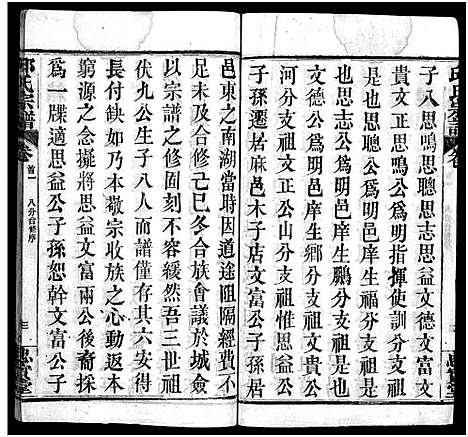 邱氏宗譜
卷
子八思鳴思聰思志思益文德文富文
貴文正思鳴公爲明指揮使訓分支祖
思聰公爲明邑庠生福分支祖思志公
爲明邑庠生鵬分支祖文德公爲明邑
庠生鄉分支祖文貴公文正公
河分支祖惟思益公
子孫遷居麻邑木子店文富公子孫居
邑東之南湖當時因道途阻隔經費不
足未及查明已冬合族會議於城僉
以宗譜之修刻不容緩然吾三世祖
伏九公生子八人而譜僅存其六安得
長付缺如乃本敬宗收族之心動返本
窮源之念擬將思益文富兩公後裔採
爲一牒適思益公子孫恕幹文富公子
邱氏宗譜
卷首一
八分合修序
三